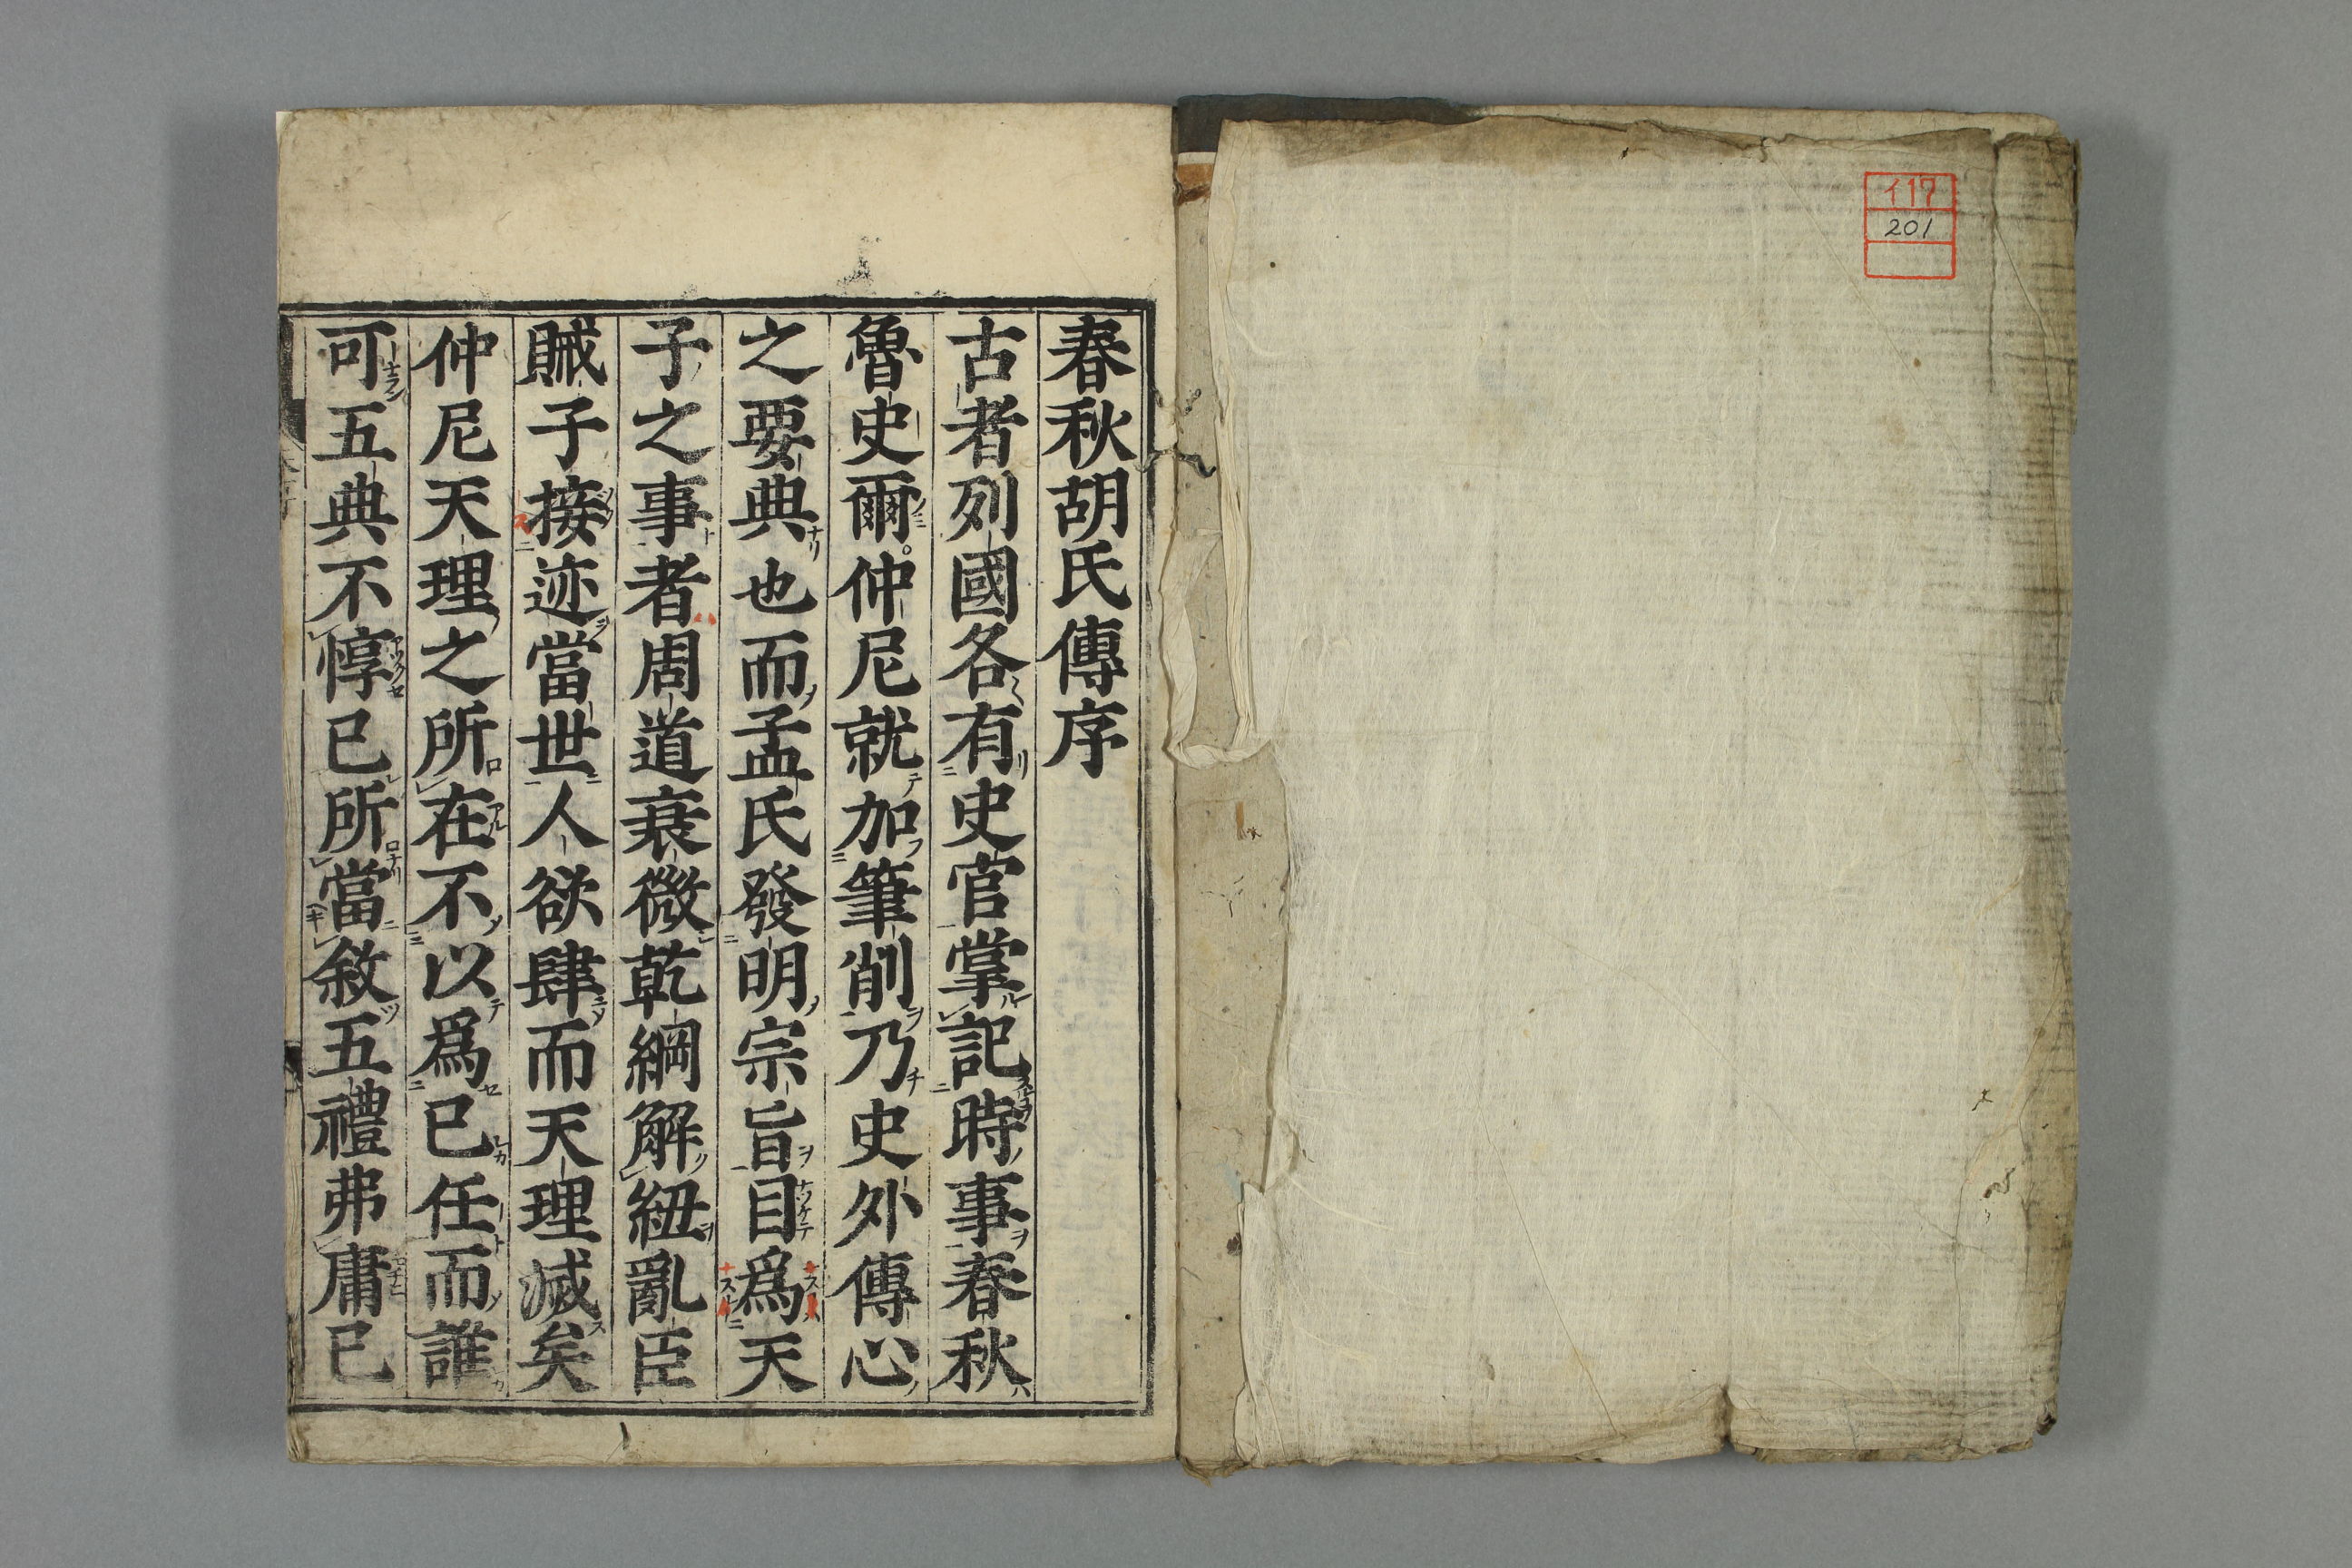 イ17
201
春秋胡氏傳序
古者列國各有史官掌記時事春秋
魯史爾仲尼就加筆削乃史外傳心
之要典也而孟氏發明宗旨目爲天
子之事者周道衰微乾綱解紐亂臣
賊子接迹當世人欲肆而天理滅矣
仲尼天理之所在不以爲已任而誰
可五典不惇已所當敘五禮弗庸已